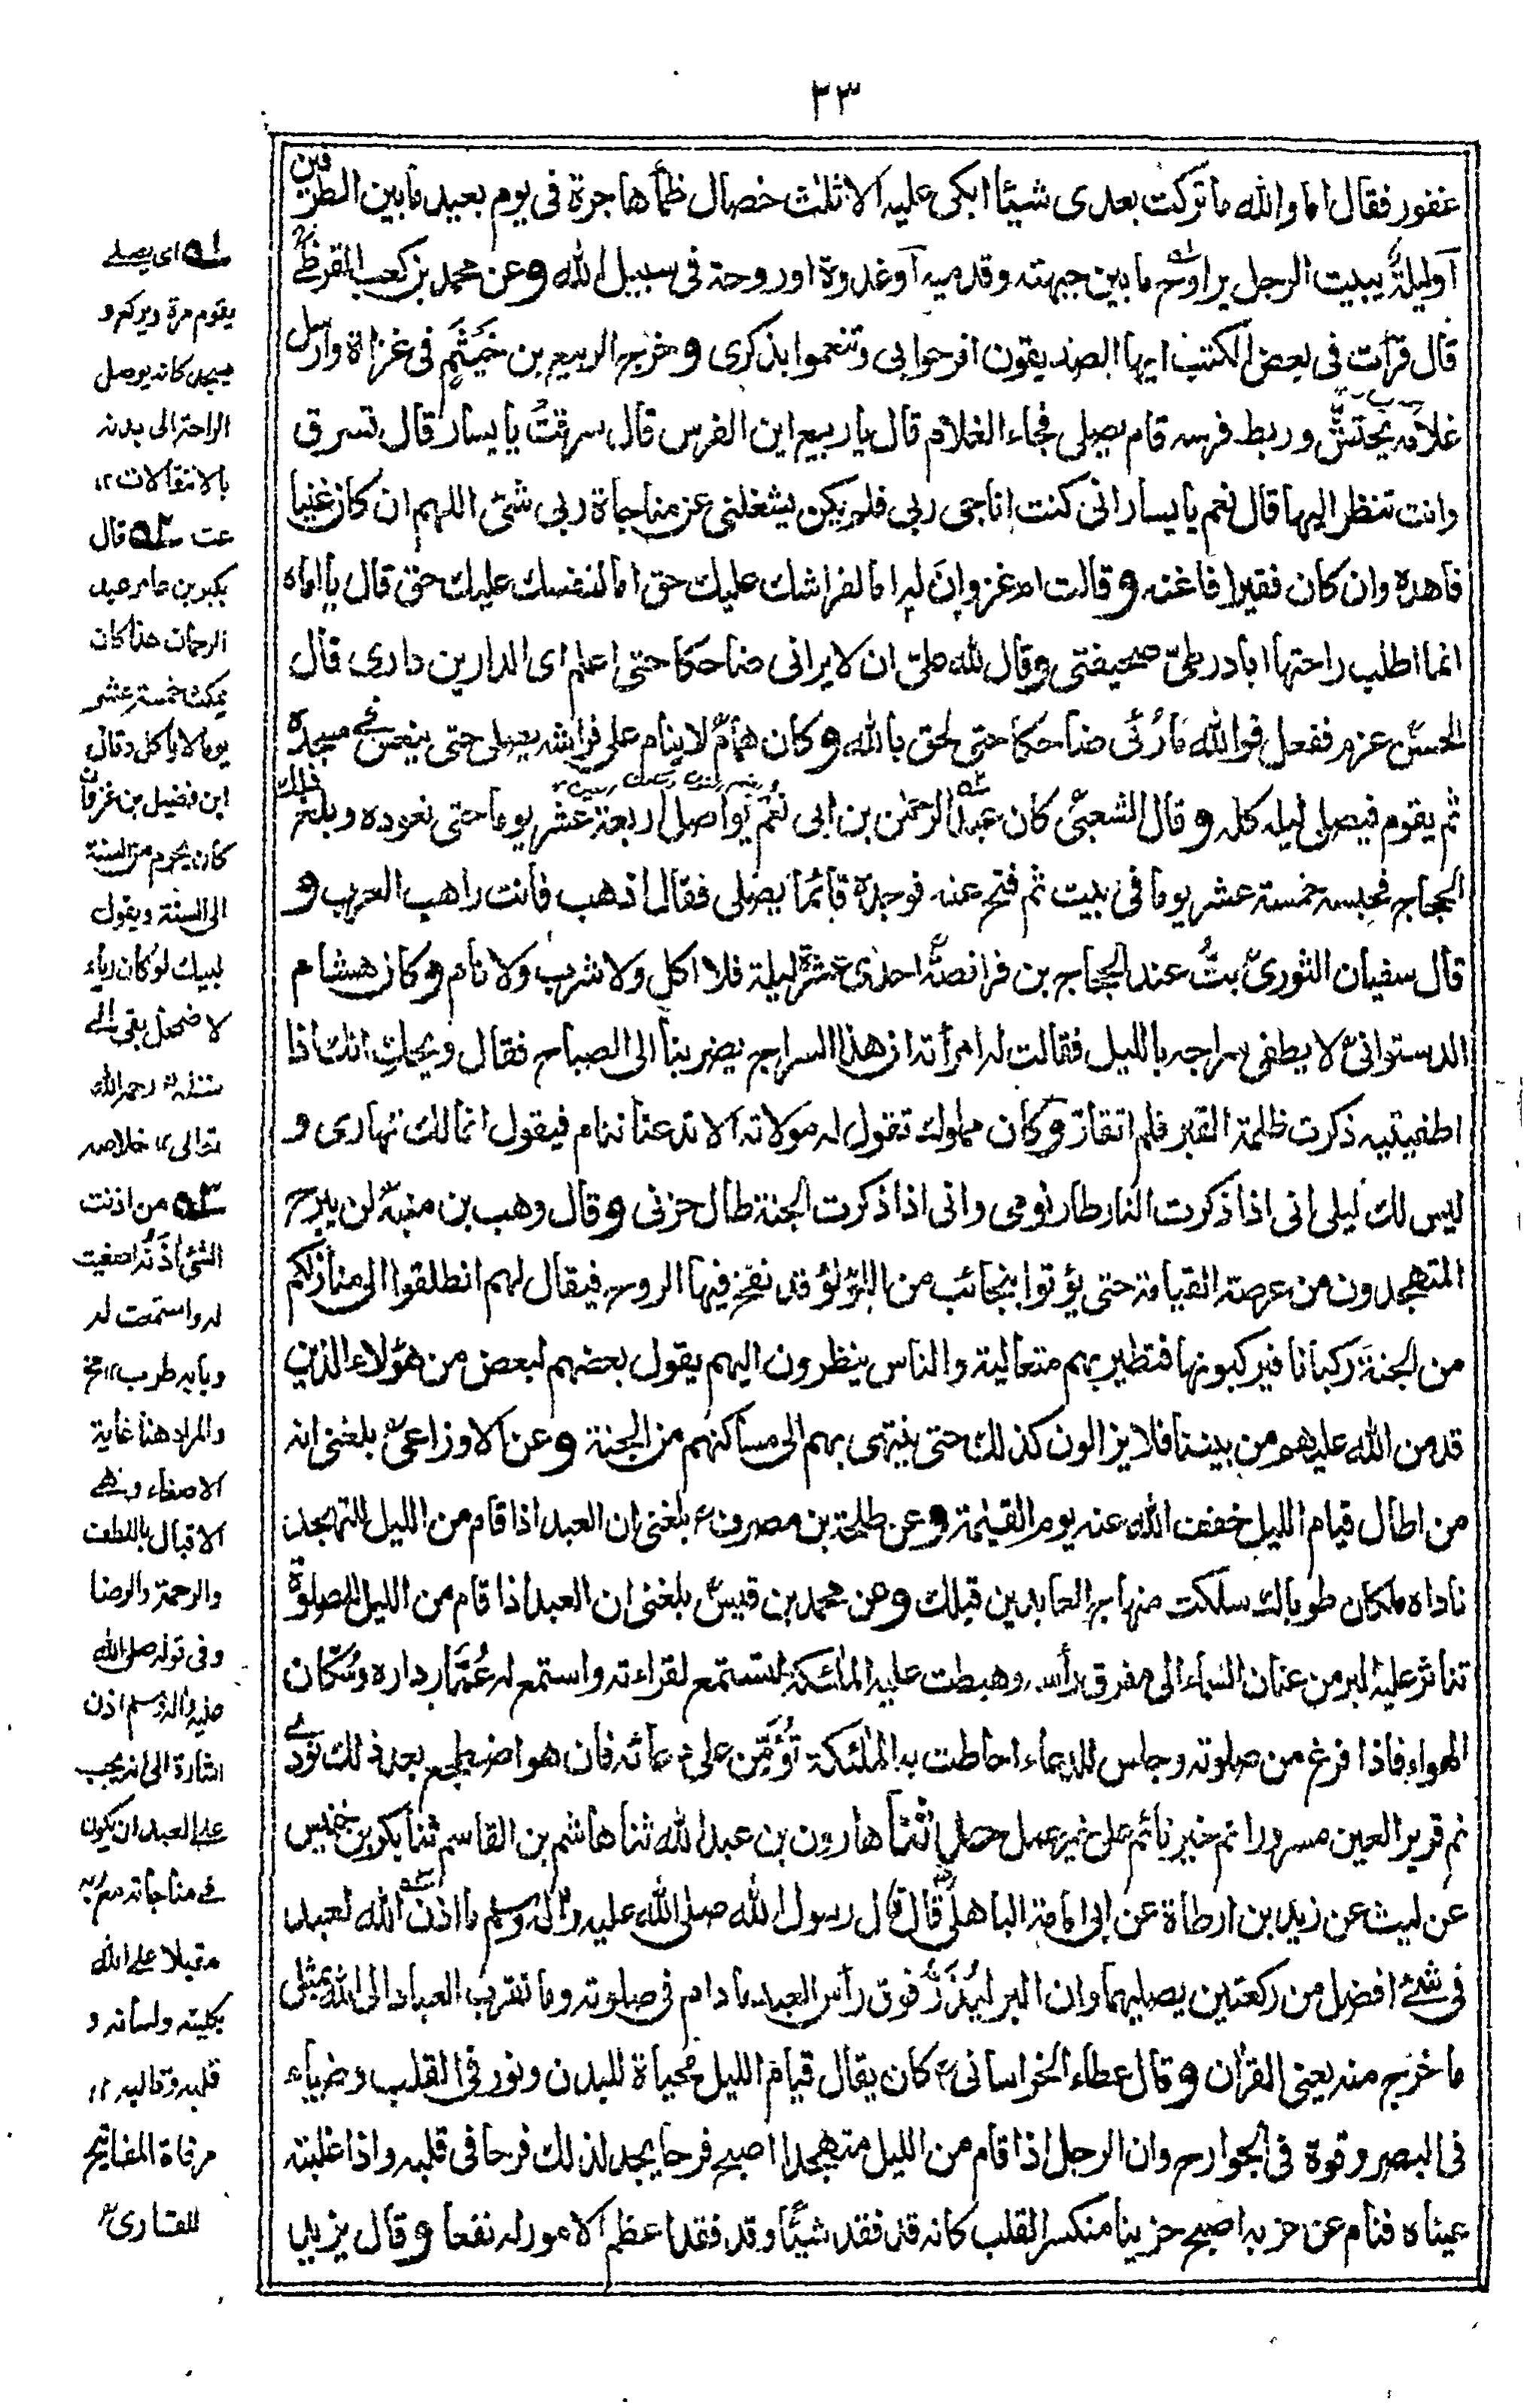 ٣٣
غفور فقال اما والله ما تركت بعدى شيئا ابكى عليه الا ثلث خصال ظمأ هاجرة فى يوم بعيد ما بين الطرفين
او ليلة يبيت الرجل يراوح ما بين جبهته وقدميه او غدوة او روحة فى سبيل الله وعن محمد بن كعب القرظى
قال قرأت فى بعض الكتب ايها الصديقون افرحوا بى وتنعموا بذكرى وخرج الربيع بن خيثم فى غزاة وارسل
غلامه يحتش وربط فرسه قام يصلى فجاء الغلام قال يا ربيع اين الفرس قال سرقت يا يسار قال تسرق
وانت تنظر اليها قال نعم يا يسار انى كنت اناجى ربى فلم يكن يشغلنى عن مناجاة ربى شئ اللهم ان كان غنيا
فاهده وان كان فقيرا فاغنه وقالت ام غزوان له اما لفراشك عليك حق اما لنفسك عليك حق قال يا اماه
انما اطلب راحتها ابادر طى صحيفتى وقال لله على ان لا يرانى ضاحكا حتى اعلم اى الدارين دارى قال
الحسن عزم ففعل فوالله ما رئى ضاحكا حتى لحق بالله وكان همام لا ينام على فراشه يصلى حتى ينعس فى مسجده
ثم يقوم فيصلى ليله كله وقال الشعبى كان عبد الرحمن بن ابى نعم يواصل اربعة عشر يوما حتى نعوده وبلغ ذلك
الحجاج فحبسه خمسة عشر يوما فى بيت ثم فتح عنه فوجده قائما يصلى فقال اذهب فانت راهب العرب و
قال سفيان الثورى بت عند الحجاج بن فرافصة احدى عشرة ليلة فلا اكل ولا شرب ولا نام وكان هشام
الدستوانى لا يطفى سراجه بالليل فقالت له امرأته ان هذا السراج يضر بنا الى الصباح فقال ويحك انك اذا
اطفيتيه ذكرت ظلمة القبر فلم اتقار وكان مملوك تقول له مولاته الا تدعنا ننام فيقول انما لك نهارى و
ليس لك ليلى انى اذا ذكرت النار طار نومى وانى اذا ذكرت الجنة طال حزنى وقال وهب بن منبه لن يبرح
المتهجدون من عرصة القيامة حتى يؤتوا بنجائب من اللؤلؤ قد نفخ فيها الروح فيقال لهم انطلقوا الى منازلكم
من الجنة ركبانا فيركبونها فتطير بهم متعالية والناس ينظرون اليهم يقول بعضهم لبعض من هؤلاء الذين
قد من الله عليهم من بيننا فلا يزالون كذلك حتى ينتهى بهم الى مساكنهم من الجنة وعن الاوزاعى بلغنى انه
من اطال قيام الليل خفف الله عنه يوم القيمة وعن طلحة بن مصرف بلغنى ان العبد اذا قام من الليل للتهجد
ناداه ملكان طوباك سلكت منهاج العابدين قبلك وعن محمد بن قيس بلغنى ان العبد اذا قام من الليل للصلوة
تناثر عليه البر من عنان السماء الى مفرق رأسه وهبطت عليه الملئكة لتستمع لقراءته واستمع له عمار داره وسكان
الهواء فاذا فرغ من صلوته وجلس للدعاء احاطت به الملئكة تؤمن على دعائه فان هو اضطجع بعد ذلك نودى
نم قرير العين مسرورا نم خير نائم على خير عمل حدثنا هارون بن عبد الله ثنا هاشم بن القاسم ثنا بكر بن خنيس
عن ليث عن زيد بن ارطاة عن ابى امامة الباهلى قال قال رسول الله صلى الله عليه واله وسلم ما اذن الله لعبد
فى شئ افضل من ركعتين يصليهما وان البر ليذر فوق رأس العبد ما دام فى صلوته وما تقرب العباد الى الله بمثل
ما خرج منه يعنى القران وقال عطاء الخراسانى كان يقال قيام الليل محياة للبدن ونور فى القلب وضياء
فى البصر وقوة فى الجوارح وان الرجل اذا قام من الليل متهجدا اصبح فرحا يجد لذلك فرحا فى قلبه واذا غلبته
عيناه فنام عن حزبه اصبح حزينا منكسر القلب كانه قد فقد شيئا وقد فقد اعظم الامور له نفعا وقال يزيد
له اى يصلى
يقوم مرة ويركع و
يسجد كانه يوصل
الراحة الى بدنه
بالانتقالات ١٢
عت ٥٢ قال
بكير بن عامر عبد
الرحمان هذا كان
يمكث خمسة عشر
يوما لا ياكل وقال
ابن فضيل بن غزوان
كان يحرم من السنة
الى السنة ويقول
لبيك لو كان رياء
لاضمحل بقى الى
رحمه الله
تعالى ١٢ خلاصه
٥٣ من اذنت
الشئ اذنه اصغيت
له واستمعت له
وبابه طرب ١٢ مخ
والمراد هنا غاية
الاصغاء وهى
الاقبال باللطف
والرحمة والرضا
وفى قوله صلى الله
عليه واله وسلم اذن
اشارة الى انه يجب
على العبد ان يكون
فى مناجاته مع ربه
مقبلا على الله
بكليته ولسانه و
قلبه وقالبه ١٢
مرقاة المفاتيح
للقارى